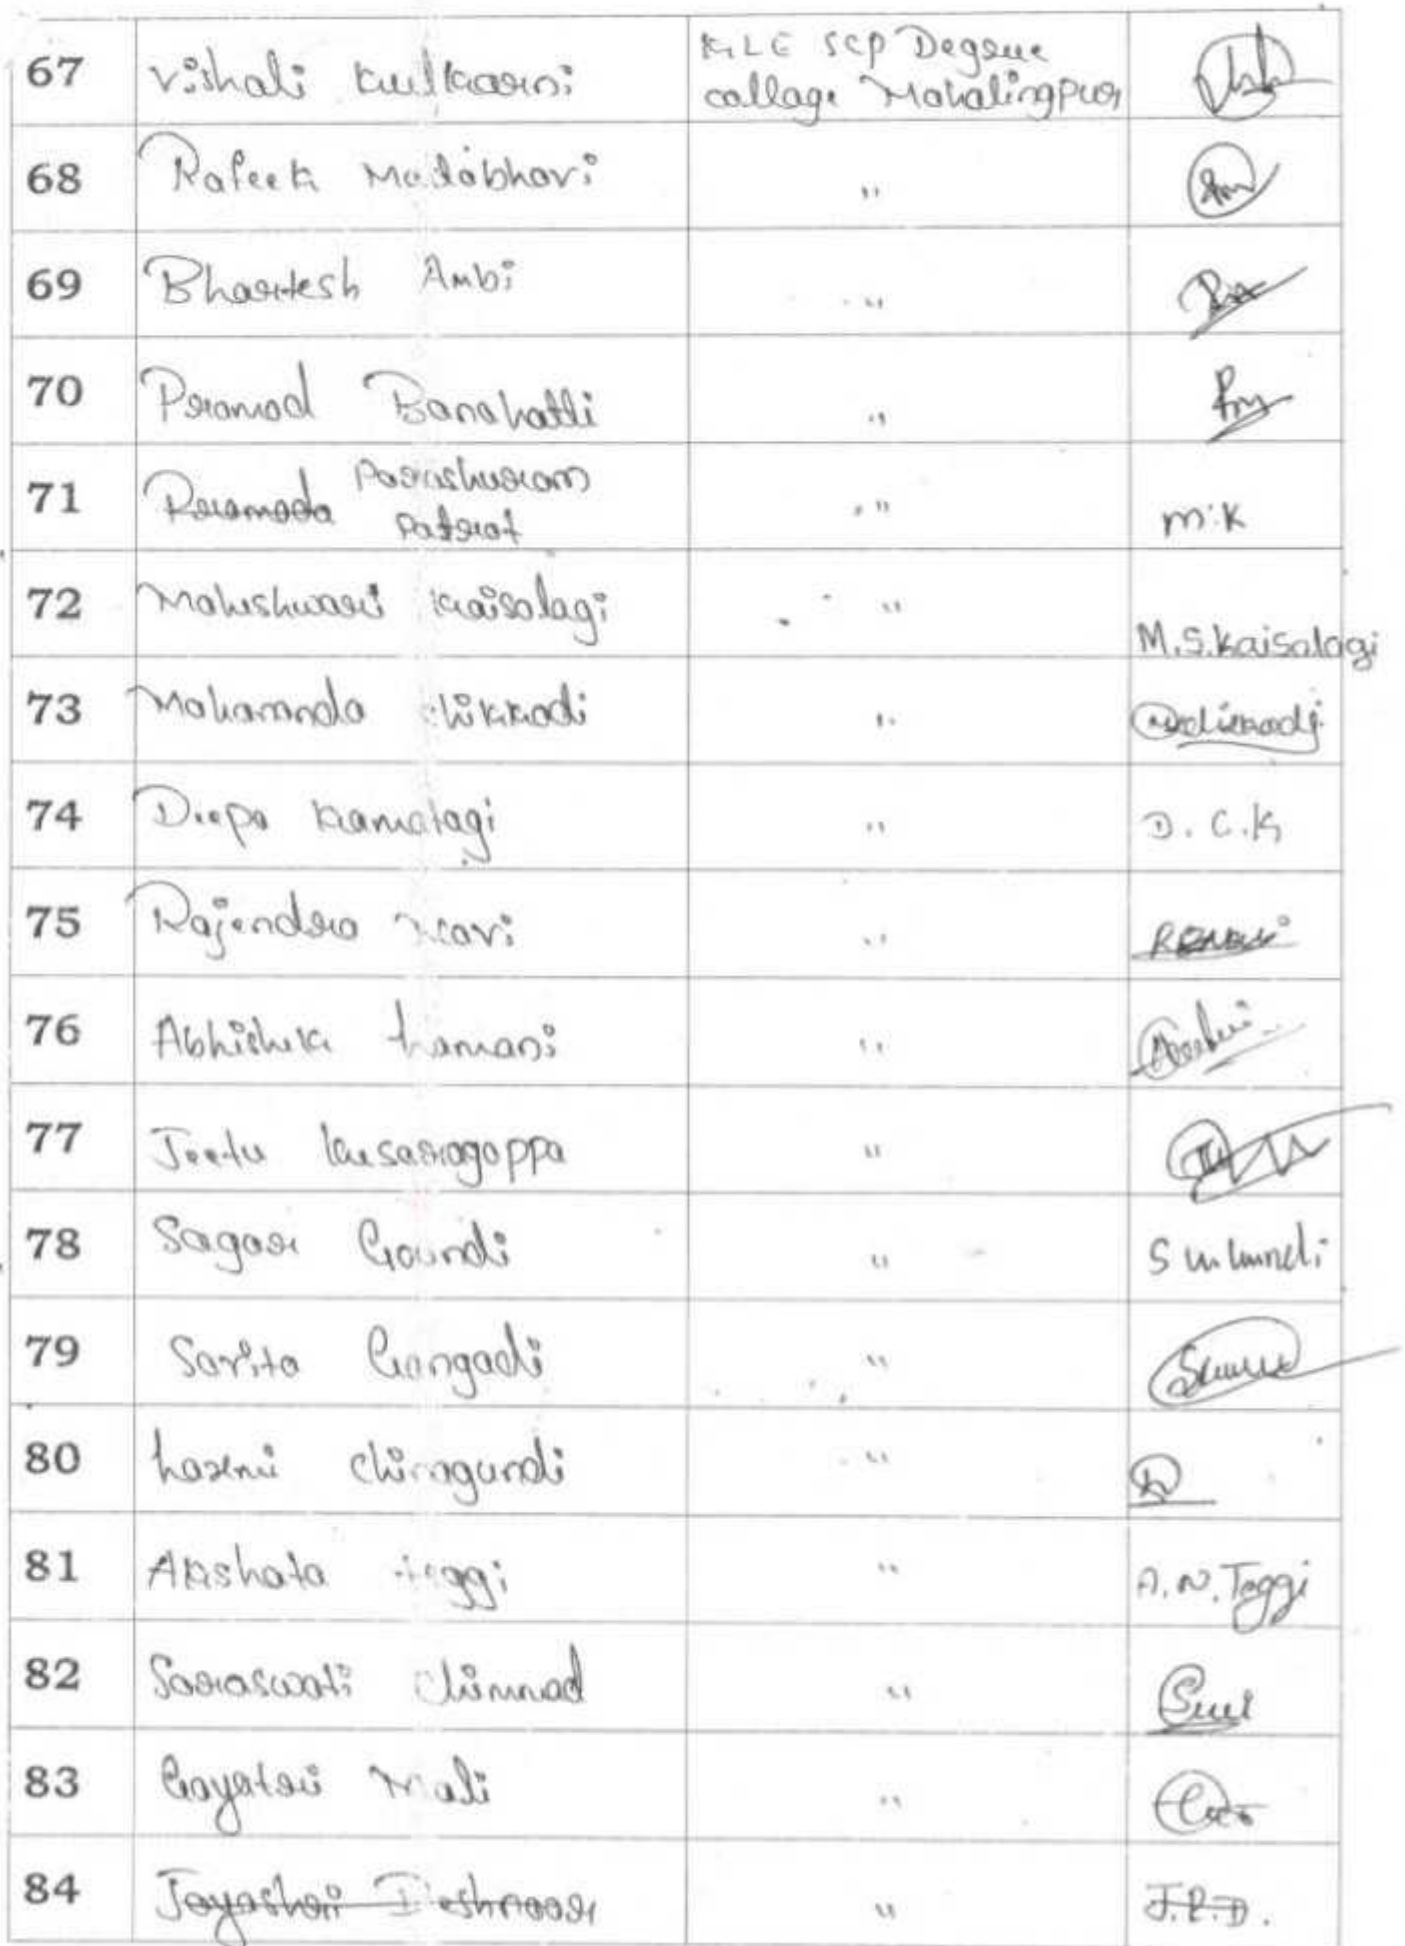 67 Vishali Kulkarni KLE SCP Degree
collage Mahalingpur
68 Rafeek Madabhavi "
69 Bhartesh Ambi "
70 Pramod Banahatti "
71 Pramoda Parashuram "
Patrot m.k
72 Maheshwari Kaisalagi "
M.S.Kaisalagi
73 Mahananda chikkadi "
74 Deepa Kamatagi " D.C.K
75 Rajendra "
76 Abhishek "
77 Jeetu Kesaragoppa "
78 Sagar Goundi "
79 Savita Gangadi "
80 Laxmi Chimagundi "
81 Akshata Teggi " A.N.Teggi
82 Saraswati Chimmad "
83 Gayatri Mali "
84 Jayashri " J.R.D.